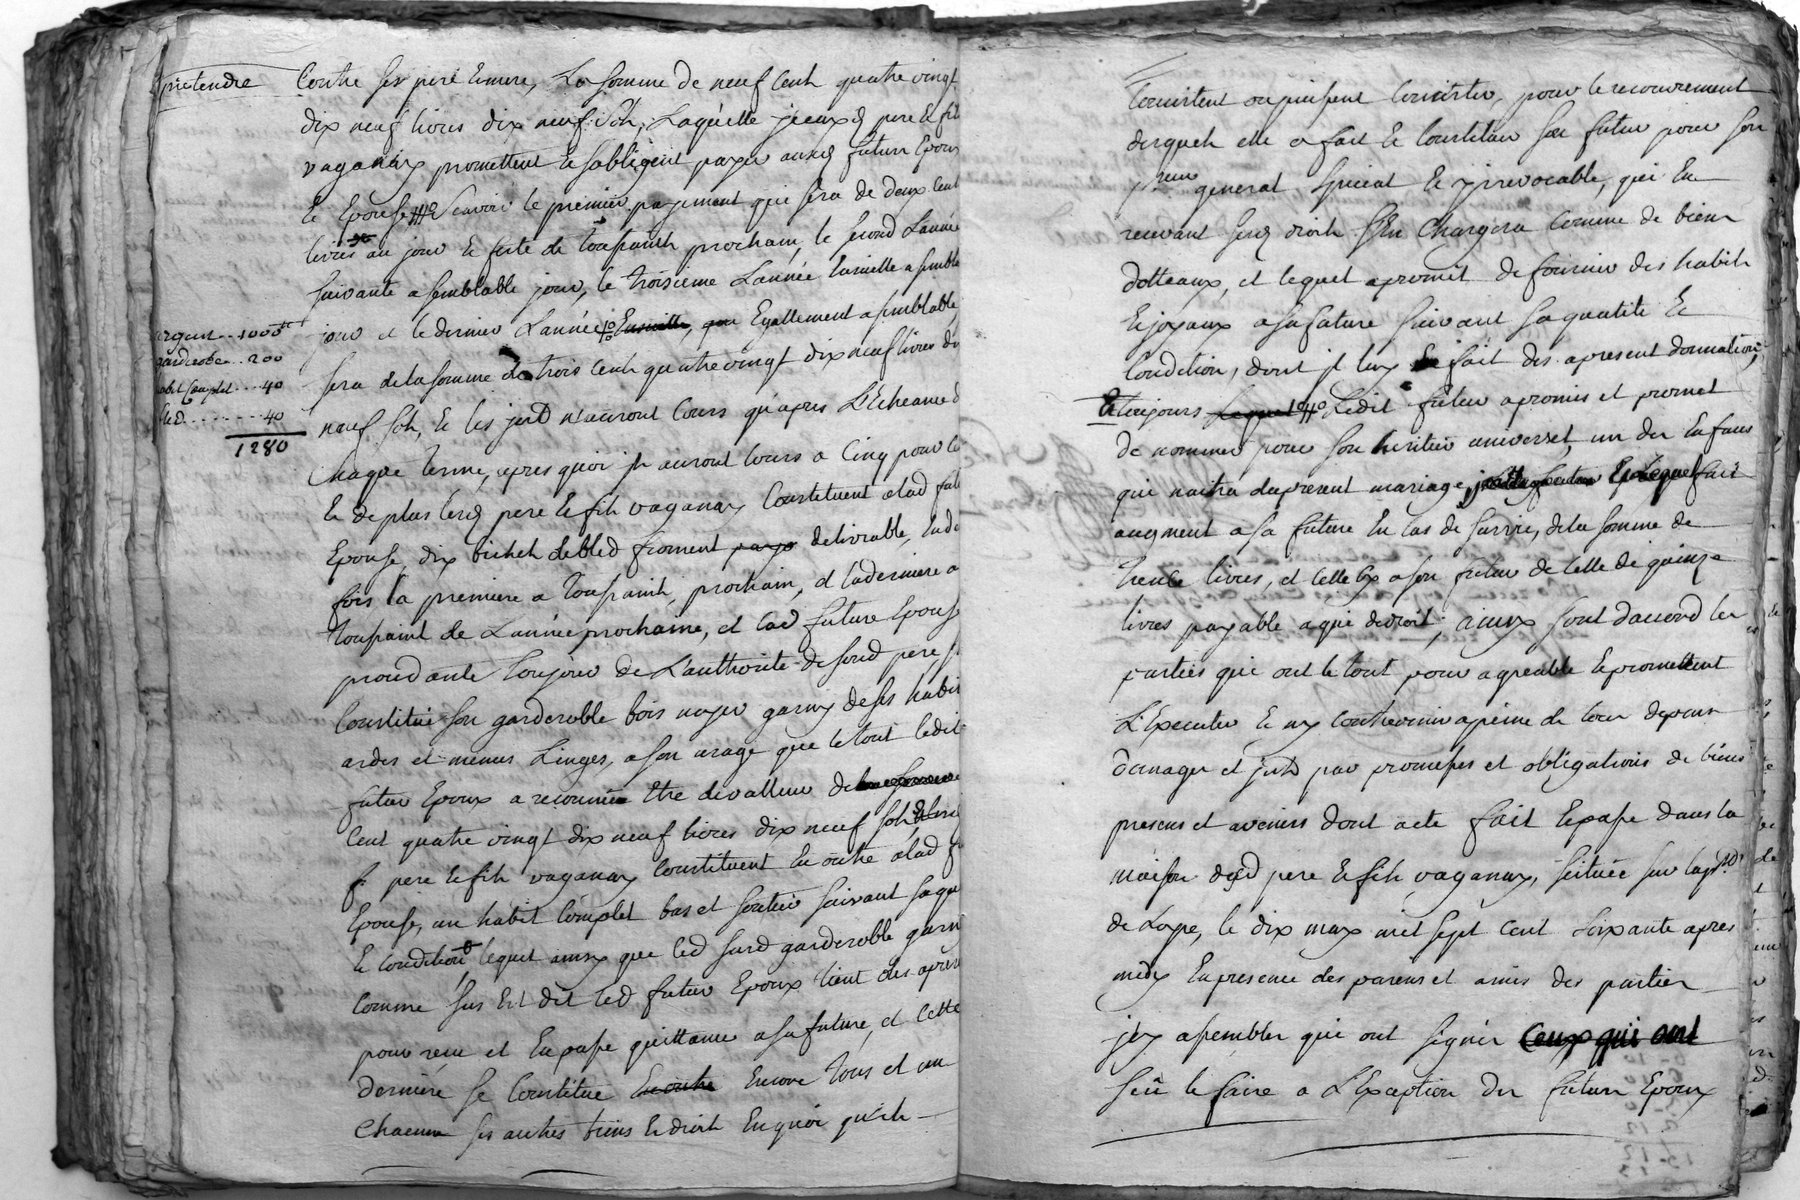 pretendre Contre ses pere et mere, La somme de neuf cent quatre vingt
dix neuf livres dix neuf sols, Laquelle iceux d pere et fils
vaganay promettent et sobligent payer auxd futurs Epoux
et Epouse scavoir le premier payement qui sera de deux cent
livres au jour et feste de Toussaints prochain, le second L'année
suivante a semblable jour, le troisieme L'année Ensuitte a semblable
jour et le dernier L'année Ensuitte, Egallement a semblable
sera de la somme de trois cent quatre vingt dix neuf livres dix
neuf sols, et les jnts n'auront Cours qu'apres L'Echeance d
Chaque terme, apres quoi ils auront cours a Cinq pour Ce
Et de plus lesd pere et fils vaganay Constituent a lad fut
Epouse, dix bichets de bled froment payé delivrable, en d
fois la premiere a Toussaints prochain, et la derniere a
Toussaint de L'année prochaine, et lad future Epouse
procedante toujour de L'authorité de sond pere, s
Constitue son garderobbe bois noyer garny de ses habits
ardes et menus Linges, a son usage que le tout ledit
futur Epoux a reconnu etre de valleur de
Cent quatre vingt dix neuf livres dix neuf sols
pere et fils vaganay Constituent En outre a lad f
Epouse, un habit Complet bas et soulier suivant sa qu
et condition lequel ainsy que led susd garderobbe garny
Comme sus Est dit led futur Epoux tient des apresent
pour recu et En passe quittance a sa future, et cette
derniere se Constitue En outre Encore tous et un
Chacun ses autres biens et droits En quoi qu'ils
argent .. 1000 tt
garderobe .. 200
abit Complet ... 40
bled ....... 40
1280
Consistent ou puissent Consister, pour le recouvrement
desquels elle a fait et Constitue son futur pour son
procureur general special et yrrevocable, qui En
recevant sesd droits s'En Chargera Comme de biens
dotteaux, et lequel a promit de fournir des habits
Et joyaux a sa future suivant sa qualité et
Condition, dont il luy fait des apresent donnation,
Et Toujours Ledit futur a promis et promet
de nommer pour son heritier universel, un des Enfans
qui naitra du present mariage, Et Lequel fait
augment a sa future En cas de survie, de la somme de
trente livres, et celle cy a son futur de celle de quinze
livres payable a qui de droit, ainsy sont daccord les
parties qui ont le tout pour agreable Et promettent
L'Executer et ny contrevenir a peine de tous depens
domages et jnts par promesses et obligations de biens
presens et avenirs dont acte fait Et passé dans la
maison desd pere et fils vaganay, scituée sur la p.sse
de Lage, le dix may mil sept cent soixante apres
midy En presence des parens et amis des parties
jcy assemblés qui ont signés Ceux qui ont
sçu le faire a L'Exception des futurs Epoux